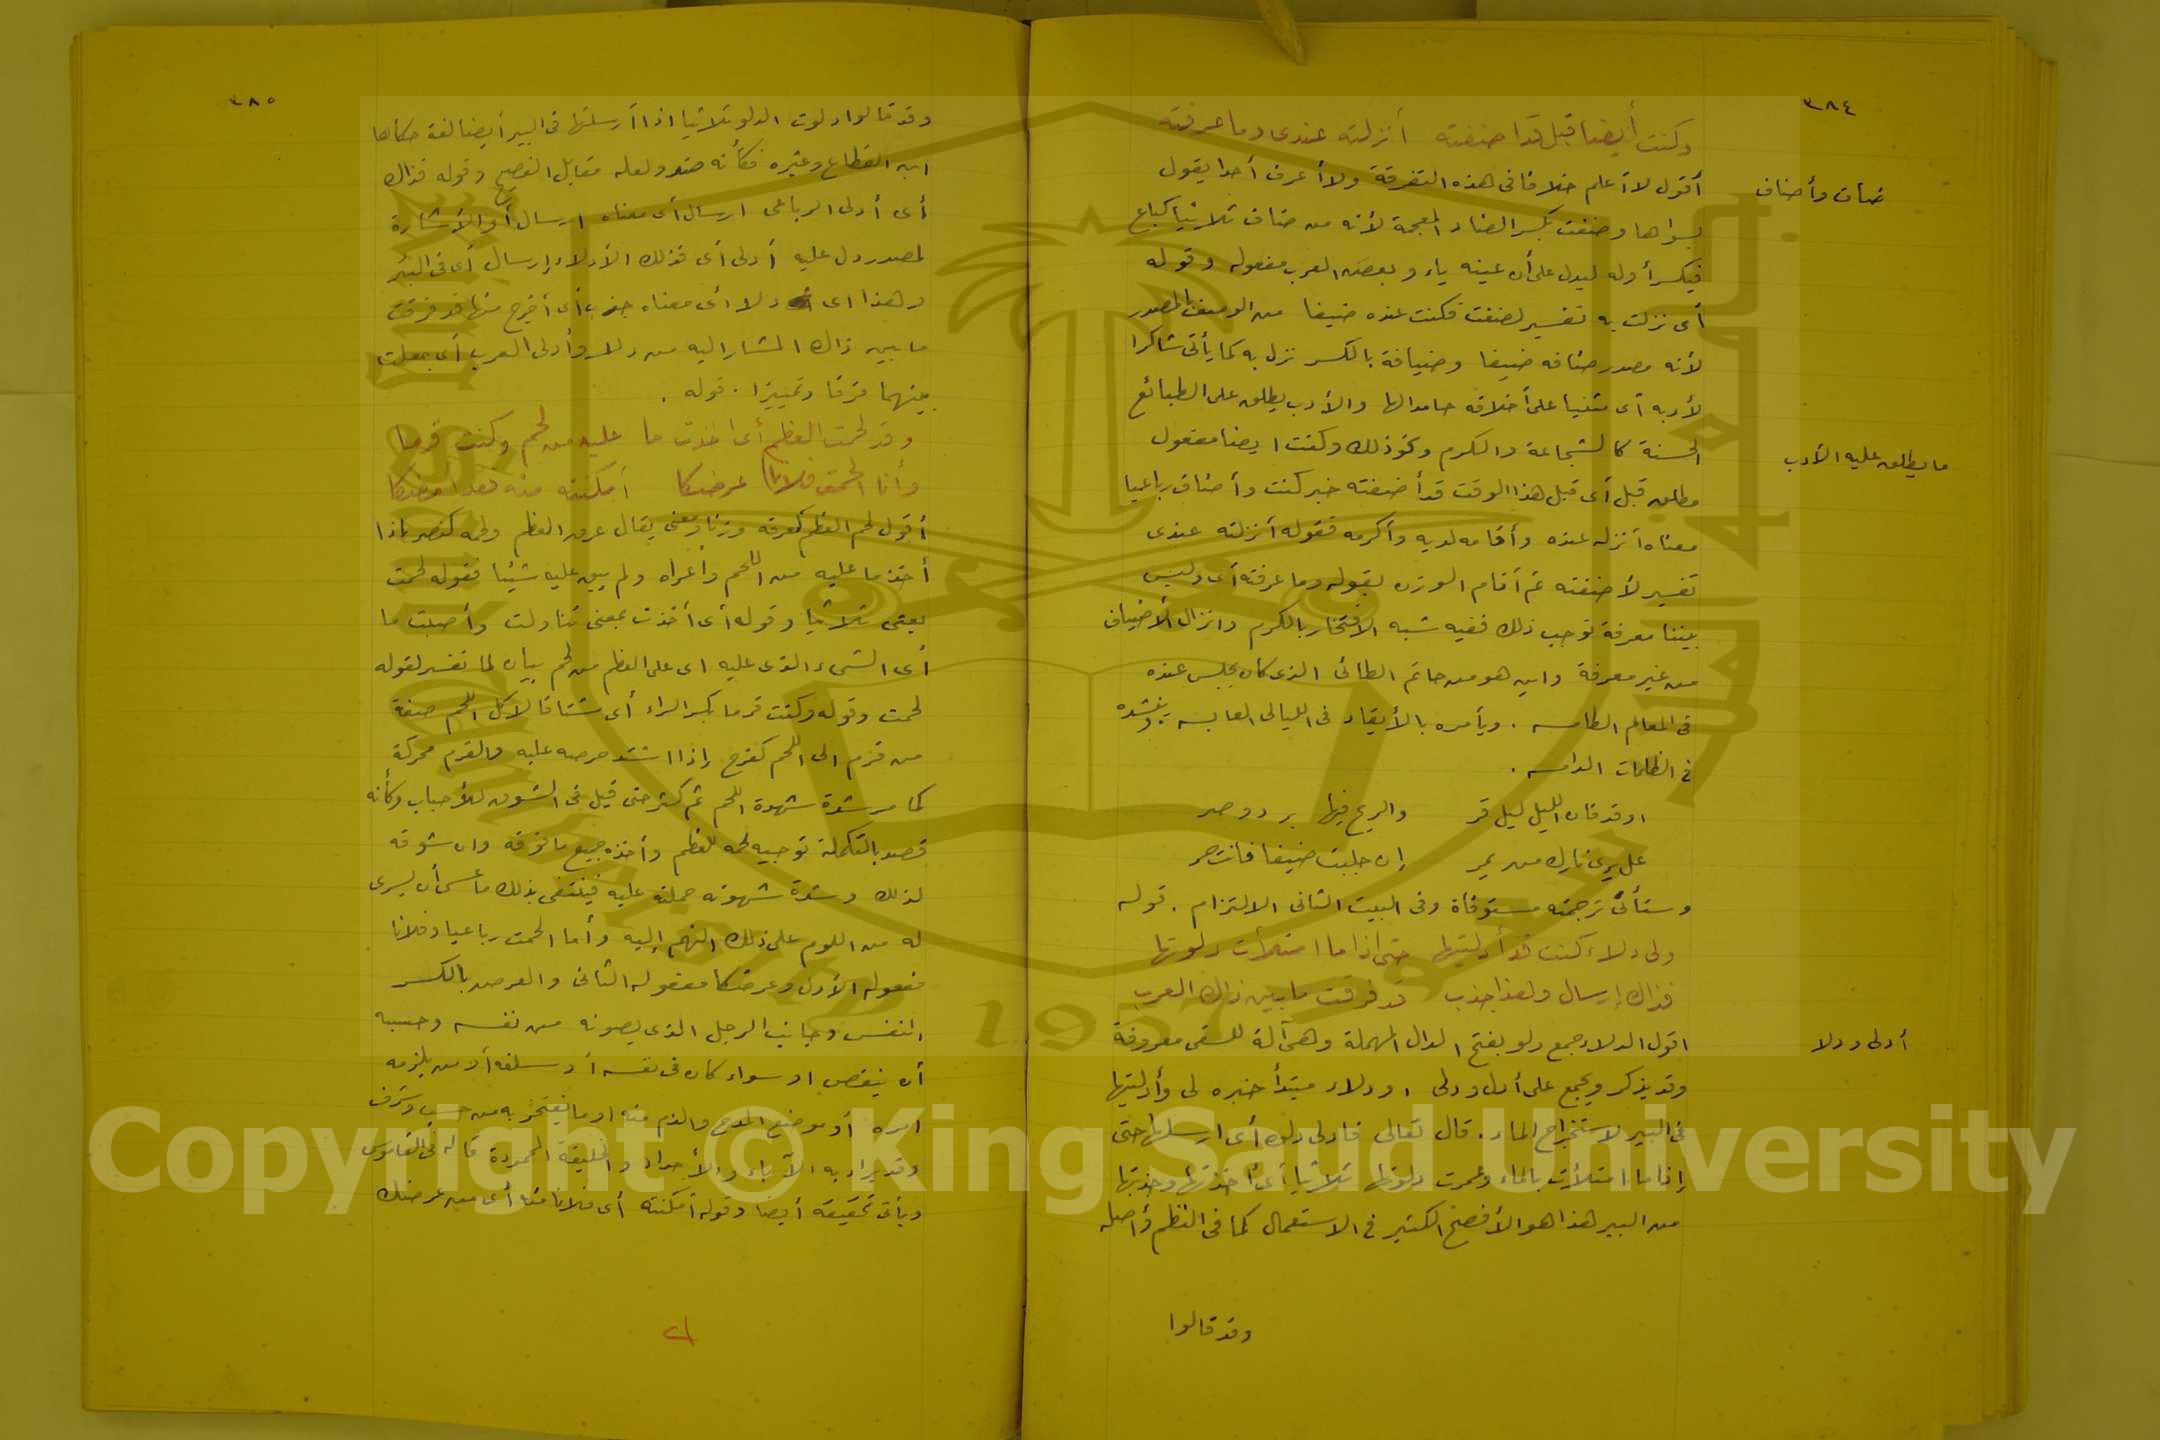 ٣٨٤
وكنت أيضا قبل قد أضفته أنزلته عندى وما عرفته
ضاف وأضاف
أقول لا أعلم خلافا فى هذه التفرقة ولا أعرف أحدا يقول
بسواها وضفت بكسر الضاد المعجمة لأنه من ضاف ثلاثيا كباع
فيكسر أوله ليدل على أن عينه ياء وبعض العرب مفعوله وقوله
أى نزلت به تفسير لضفت فكنت عنده ضيفا من الوصف بالمصدر
لأنه مصدر ضافه ضيفا وضيافة بالكسر نزل به كما يأتى شاكرا
لأدبه أى مثنيا على أخلاقه حامدا لها والأدب يطلق على الطبائع
ما يطلق عليه الأدب
الحسنة كالشجاعة والكرم ونحو ذلك وكنت ايضا مفعول
مطلق قبل أى قبل هذا الوقت قد أضفته خبر كنت وأضاف رباعيا
معناه أنزله عنده وأقامه لديه وأكرمه فقوله أنزلته عندى
تفسير لأضفته ثم أقام الوزن بقوله وما عرفته أى وليس
بيننا معرفة توجب ذلك ففيه شبه الافتخار بالكرم وانزال الأضياف
من غير معرفة واين هو من حاتم الطائى الذى كان يجلس عنده
فى المعالم الطامسه . ويأمره بالأيقاد فى الليالى العابسه . وينشده
فى الظلمات الدامسه .
اوقد فان الليل ليل قر والريح فيها برد وصر
عل يرى نارك من يمر إن جلبت ضيفا فانت حر
وستأتى ترجمته مستوفاة وفى البيت الثانى الالتزام . قوله
ولى دلاء كنت قد أدليتها حتى اذا ما امتلأت دلوتها
فذاك إرسال وهذا جذب قد فرقت ما بين ذاك العرب
أدلى ودلا
اقول الدلاء جمع دلو بفتح الدال المهملة وهى آلة للسقى معروفة
وقد يذكر ويجمع على أدل ودلى ، ودلاء مبتدأ خبره لى وأدليتها
فى البير لاستخراج الماء . قال تعالى فادلى دلوه أى ارسلها حتى
إذا ما امتلأت بالماء وعمرت دلوتها ثلاثيا أى أخذتها وجذبتها
من البير هذا هو الأفصح الكثير فى الاستعمال كما فى النظم وأصله
وقد قالوا
٣٨٥
وقد قالوا دلوت الدلو ثلاثيا اذا أرسلتها فى البير أيضا لغة حكاها
ابن القطاع وغيره فكأنه ولعله مقابل الفصيح وقوله فذاك
أى أدلى الرباعى ارسال أى معناه ارسال أو الأشارة
لمصدر دل عليه أدلى أى فذلك الأدلاء إرسال أى فى البئر
وهذا اى دلا أى معناه جذب أى أخرج منها قد فرقت
ما بين ذاك المشار اليه من دلا وأدلى العرب أى جعلت
بينهما فرقا وتمييزا . قوله .
وقد لحمت العظم أى اخذت ما عليه من لحم وكنت قرما
وأنا ألحمت فلانا عرضكا أمكنته منه فقد أمضكا
أقول لحم العظم كعرقه وزنا ومعنى يقال عرق العظم ولحمه كنصر إذا
أخذ ما عليه من اللحم وأعراه ولم يبق عليه شيئا فقوله لحمت
يعنى ثلاثيا وقوله أى أخذت بمعنى تناولت وأصبت ما
أى الشىء الذى عليه اى على العظم من لحم بيان لما تفسير لقوله
لحمت وقوله وكنت قرما بكسر الراء أى مشتاقا لأكل اللحم صفة
من قرم الى اللحم كفرح إذا اشتد حرصه عليه والقرم محركة
كما مر شدة شهوة اللحم ثم كثر حتى قيل فى الشوق للأحباب وكأنه
قصد بالتكملة توجيه لحمه للعظم وأخذه جميع ما فوقه وان شوقه
لذلك وشدة شهوته حملته عليه فينتفى بذلك ما عسى أن يسرى
له من اللوم على ذلك النهم إليه وأما الحمت رباعيا وفلانا
مفعوله الأول وعرضكا مفعوله الثانى والعرض بالكسر
النفس وجانب الرجل الذى يصونه من نفسه وحسبه
أن ينقص او سواء كان فى نفسه أو سلفه أو من يلزمه
امره أو موضع المدح والذم منه او ما يفتخر به من حسب وشرف
وقد يراد به الآباء والأجداد والخليقة المحمودة قاله فى القاموس
ويأتى تحقيقه أيضا وقوله أمكنته أى فلانا منه أى من عرضك
Copyright © King Saud University
King Saud University
1957